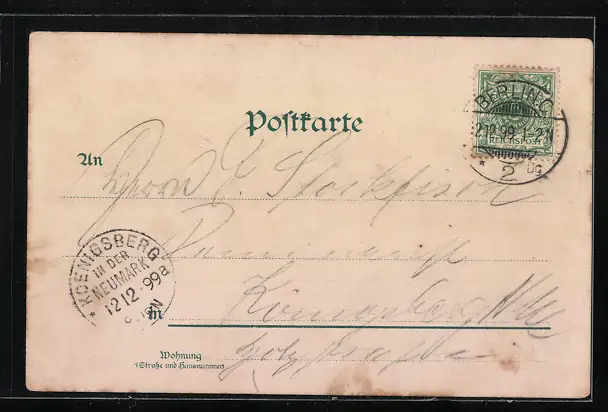 BERLIN C
2.12.99.1-2N
2 ng
REICHSPOST
Postkarte
An Herrn C. Stockfisch
Königsberg N/M
in
KOENIGSBERG
IN DER
NEUMARK
12.12.99
a
Wohnung
(Straße und Hausnummer)